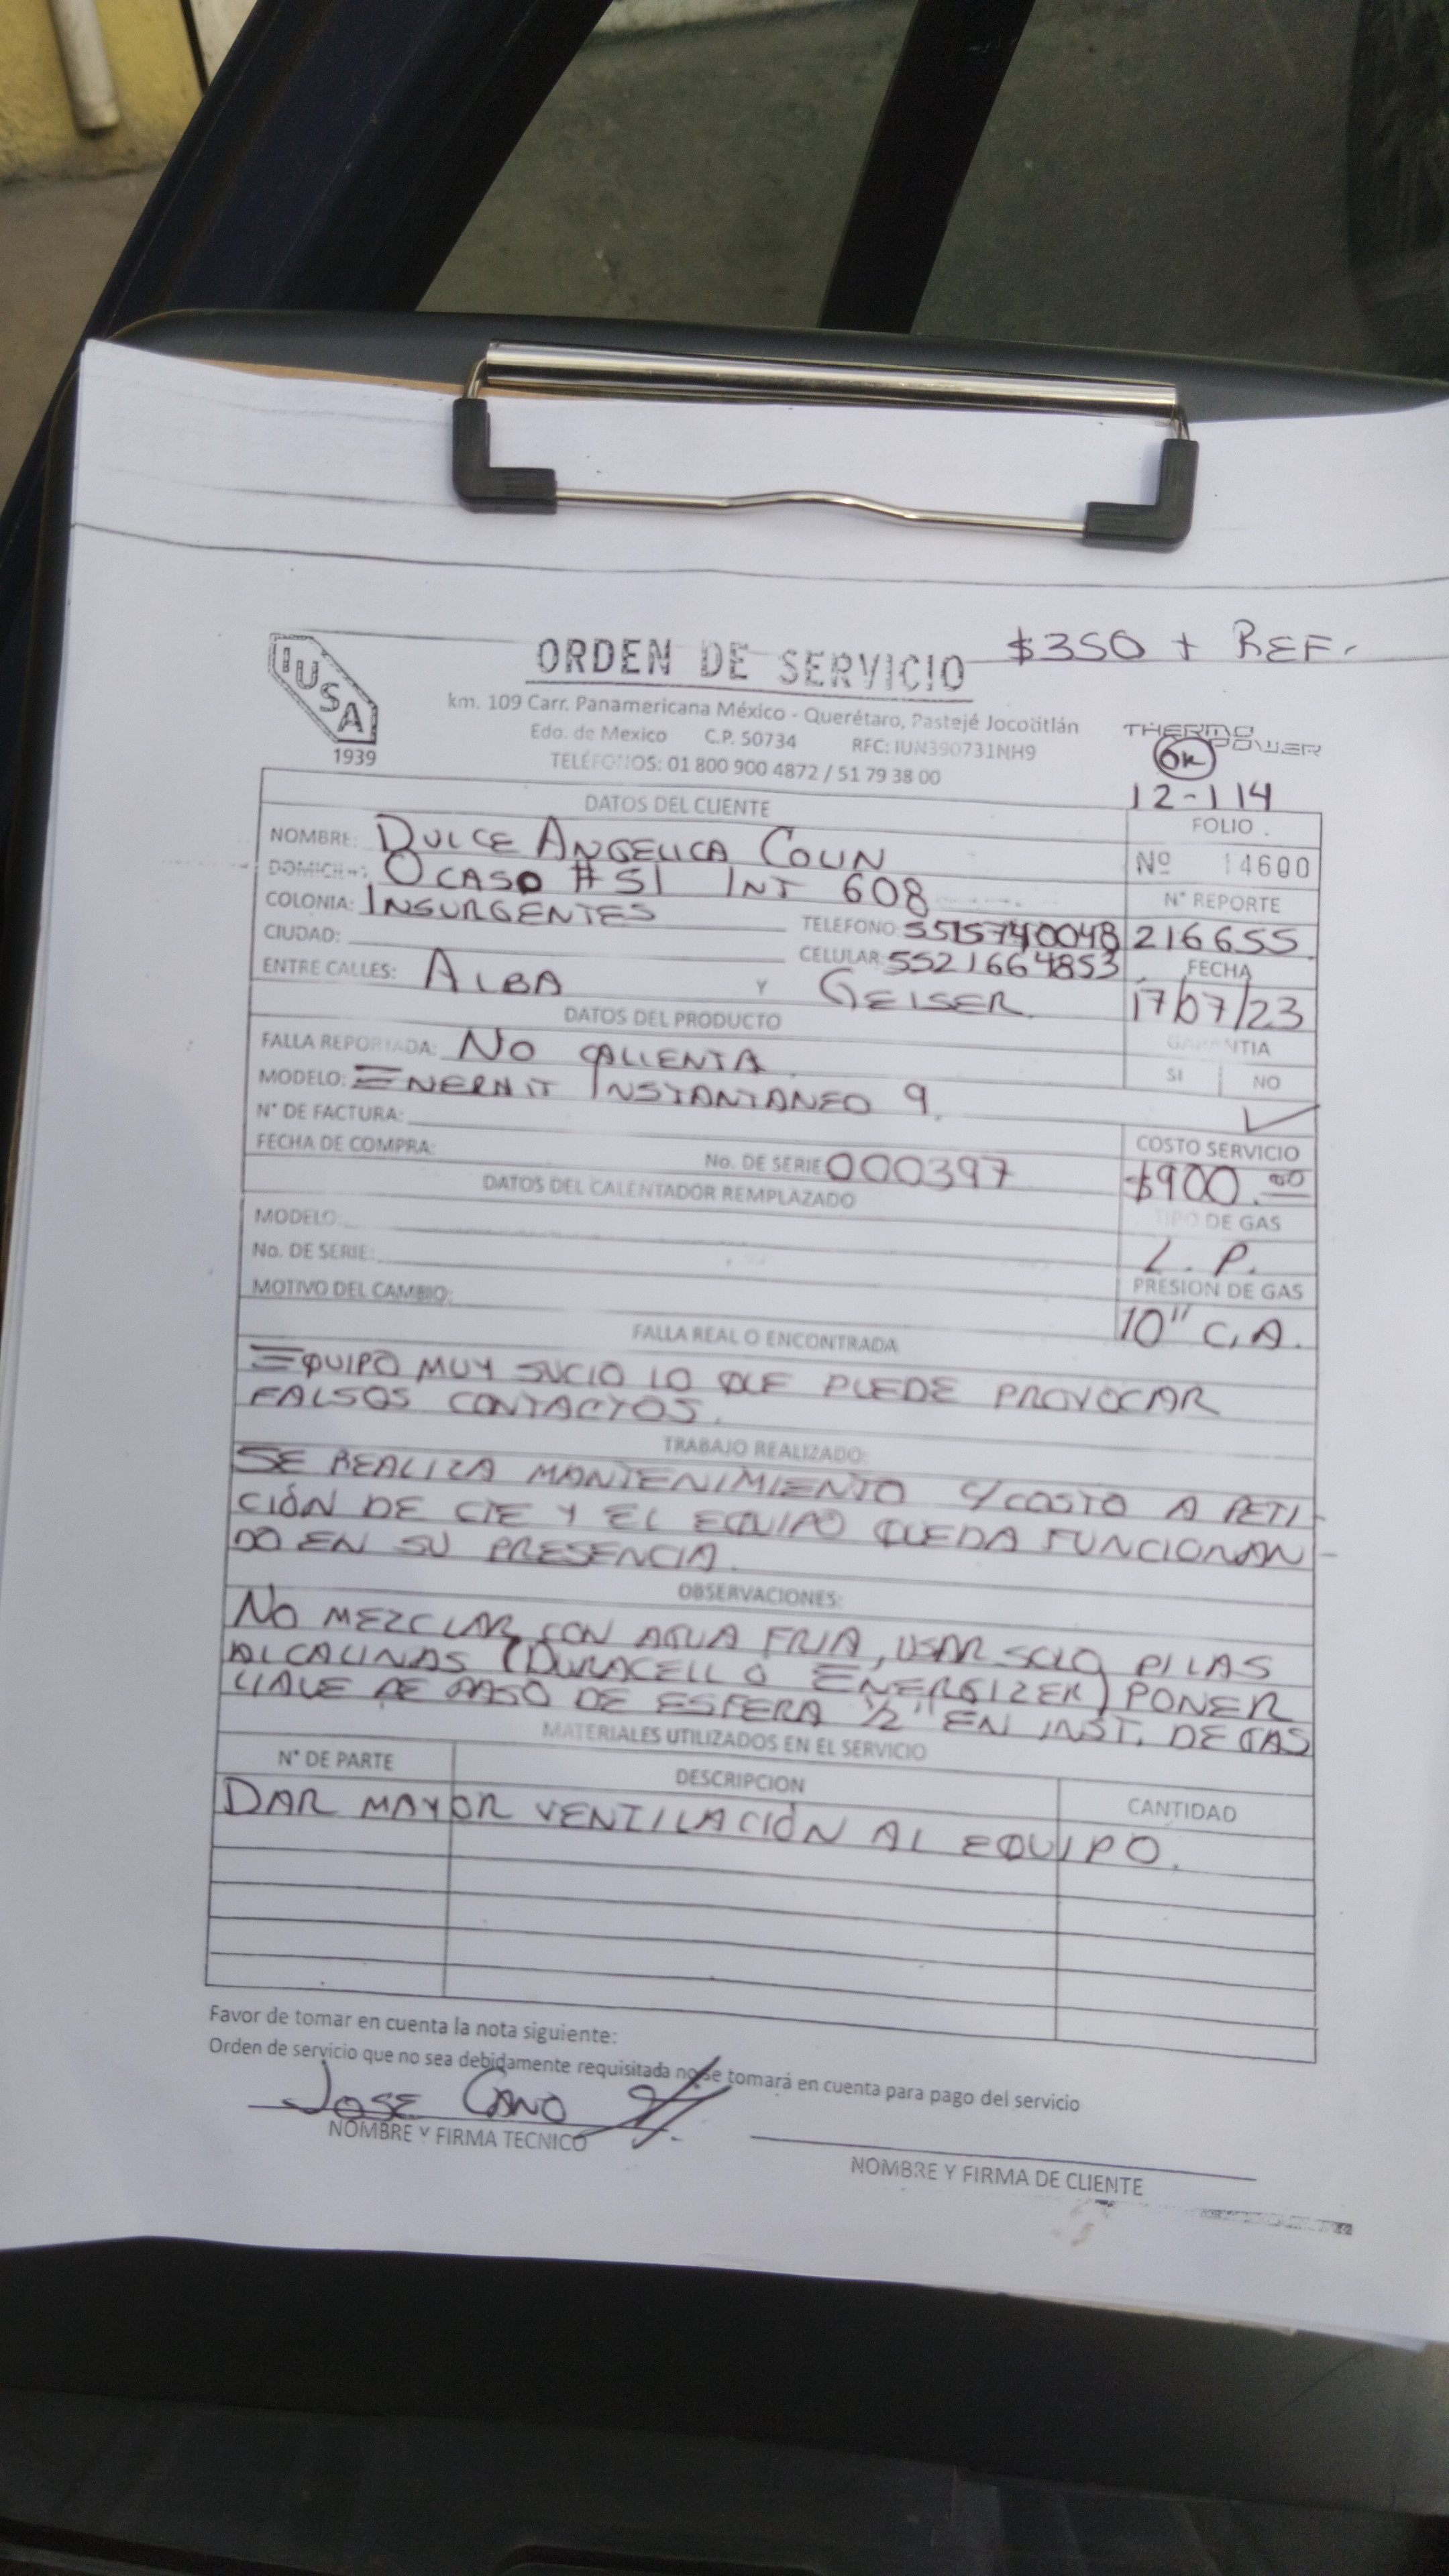 ORDEN DE SERVICIO
$350 + REF.
IUSA
1939
km. 109 Carr. Panamericana México - Querétaro, Pastejé Jocotitlán
Edo. de Mexico C.P. 50734 RFC: IUN390731NH9
TELÉFONOS: 01 800 900 4872 / 51 79 38 00
THERMO POWER
OK
12-114
DATOS DEL CLIENTE
FOLIO
NOMBRE: DULCE ANGELICA COLIN
Nº 14600
DOMICILIO: OCASO #51 INT 608
N° REPORTE
COLONIA: INSURGENTES TELÉFONO: 5515740048
216655
CIUDAD: CELULAR: 5521664853
FECHA
ENTRE CALLES: ALBA Y GEISER
17/07/23
DATOS DEL PRODUCTO
GARANTIA
FALLA REPORTADA: NO CALIENTA
SI NO
MODELO: INSTANTANEO 9
✓
N° DE FACTURA:
COSTO SERVICIO
FECHA DE COMPRA: No. DE SERIE 000397
$900.00
DATOS DEL CALENTADOR REMPLAZADO
TIPO DE GAS
MODELO:
L.P.
No. DE SERIE:
PRESION DE GAS
MOTIVO DEL CAMBIO:
10" C.A.
FALLA REAL O ENCONTRADA
EQUIPO MUY SUCIO LO QUE PUEDE PROVOCAR
FALSOS CONTACTOS.
TRABAJO REALIZADO:
SE REALIZA MANTENIMIENTO C/COSTO A PETI-
CIÓN DE CTE Y EL EQUIPO QUEDA FUNCIONAN-
DO EN SU PRESENCIA.
OBSERVACIONES:
NO MEZCLAR CON AGUA FRIA, USAR SOLO PILAS
ALCALINAS (DURACELL O ENERGIZER) PONER
LLAVE DE PASO DE ESFERA 1/2" EN INST. DE GAS
MATERIALES UTILIZADOS EN EL SERVICIO
N° DE PARTE DESCRIPCION CANTIDAD
DAR MAYOR VENTILACIÓN AL EQUIPO.
Favor de tomar en cuenta la nota siguiente:
Orden de servicio que no sea debidamente requisitada no se tomará en cuenta para pago del servicio
JOSE CANO
NOMBRE Y FIRMA TECNICO
NOMBRE Y FIRMA DE CLIENTE